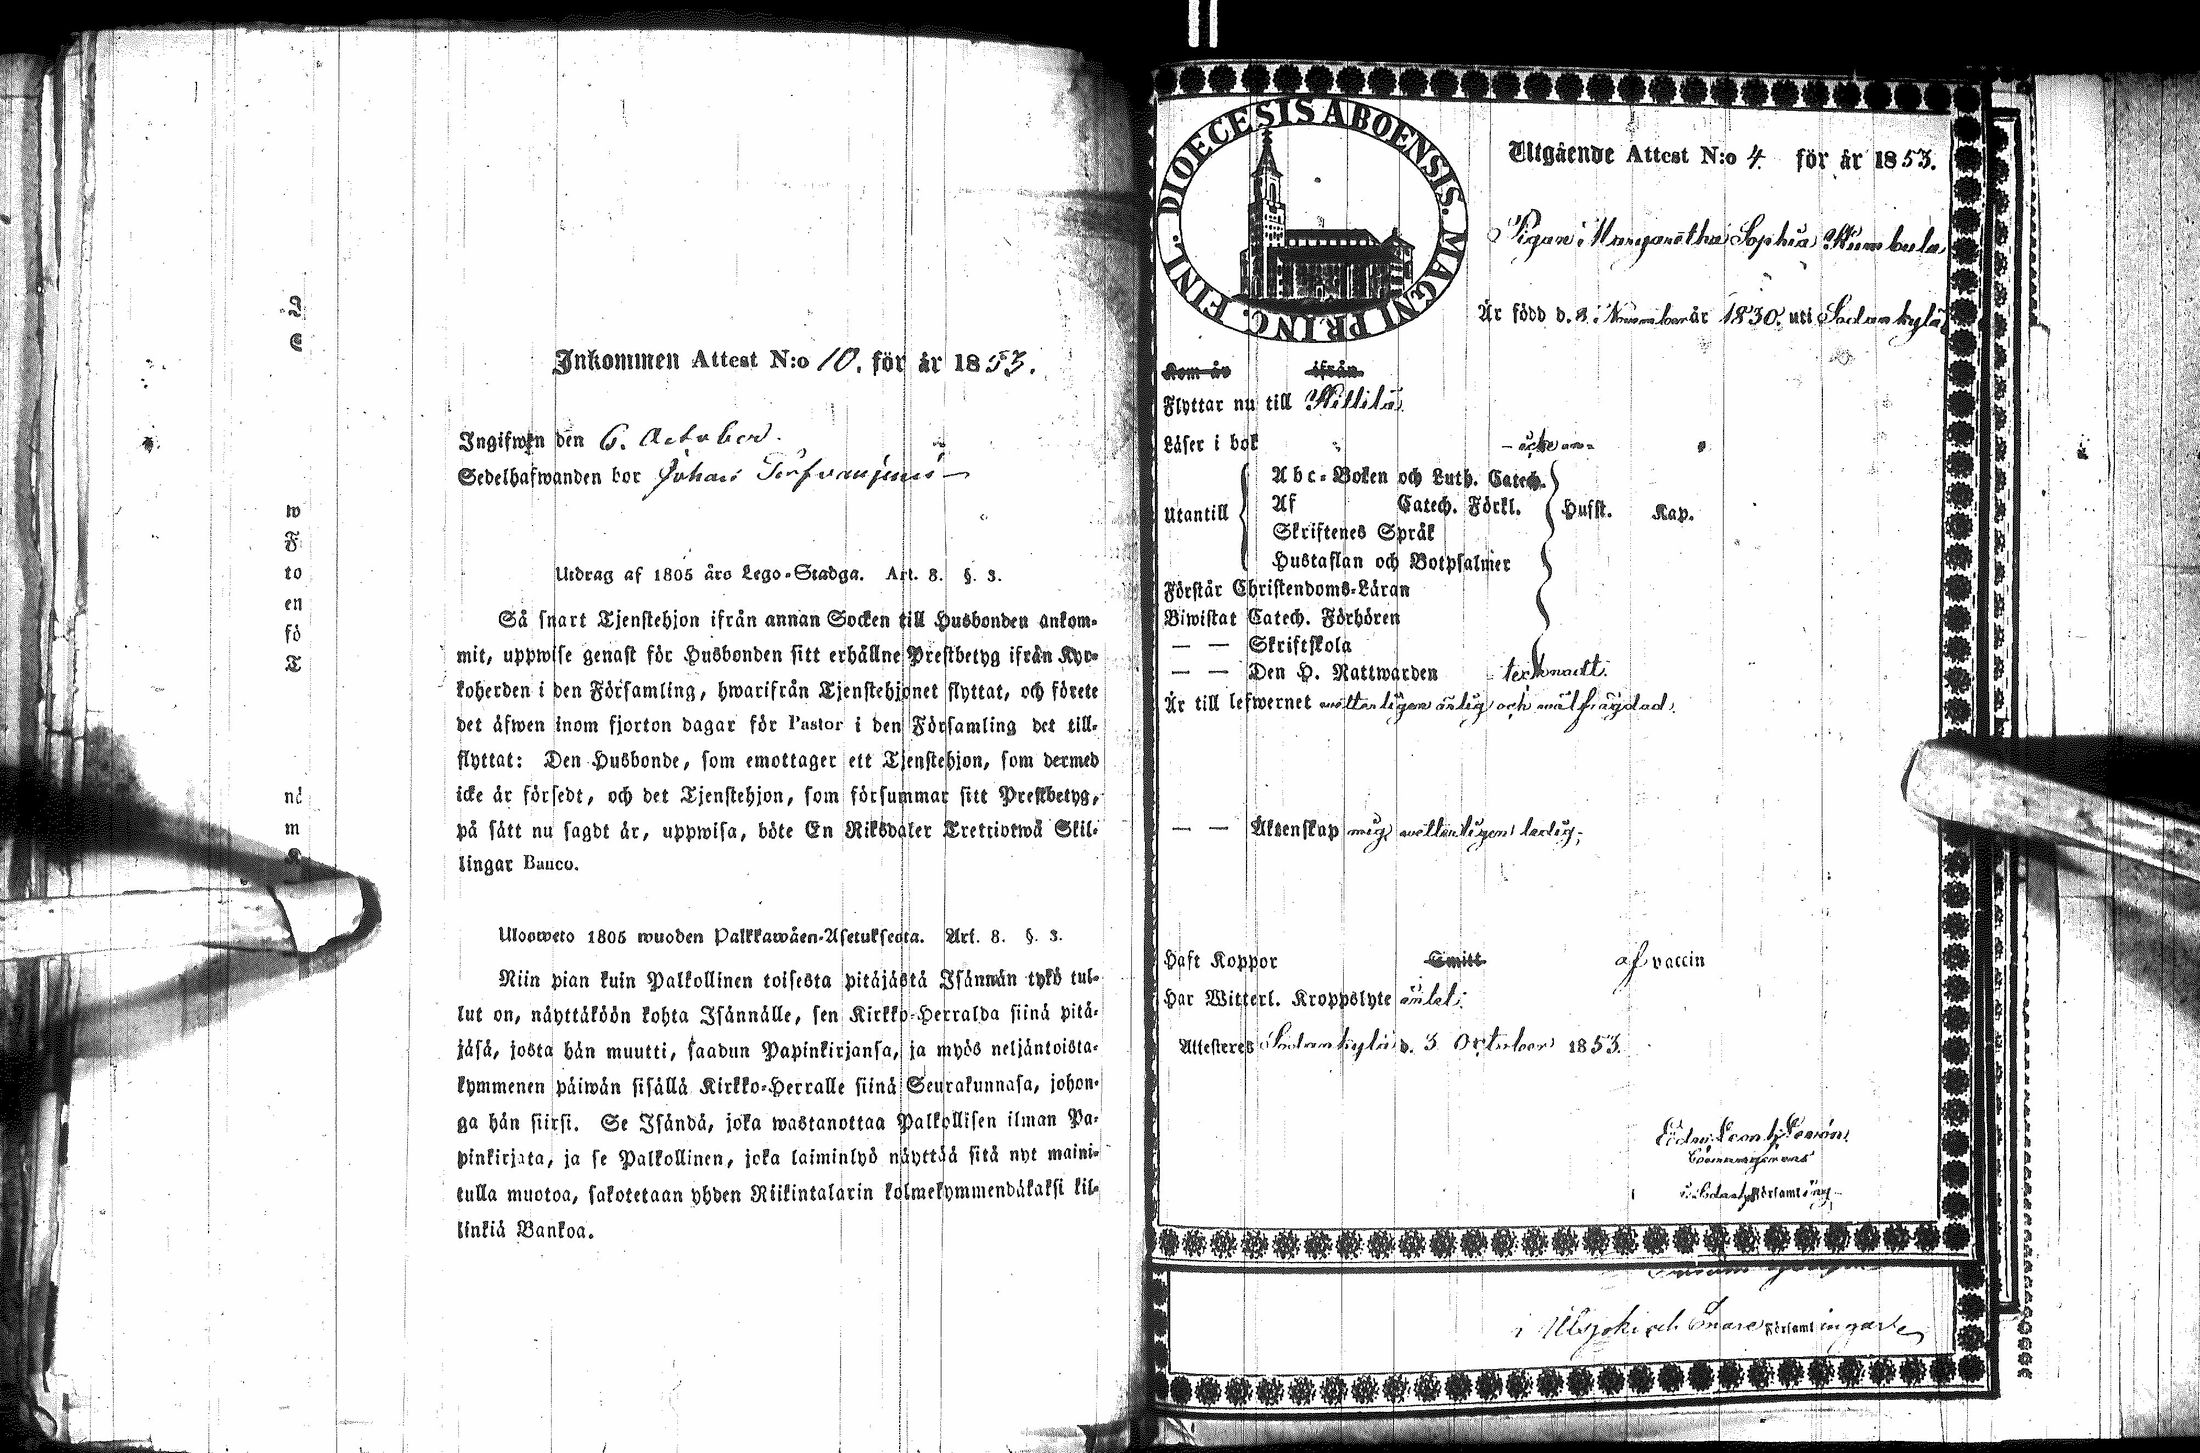 Inkommen Attest N:o 10. för år 1853.
Ingifwen den 6. October.
Sedelhafwanden bor Johan
Utdrag af 1805 års Lego-Stadga. Art. 8. §. 3.
Så snart Tjenstehjon ifrån annan Socken till Husbonden ankom-
mit, uppwise genast för Husbonden sitt erhållne Prestbetyg ifrån Kyr-
koherden i den Församling, hwarifrån Tjenstehjonet flyttat, och förete
det äfwen inom fjorton dagar för Pastor i den Församling det till-
flyttat: Den Husbonde, som emottager ett Tjenstehjon, som dermed
icke är försedt, och det Tjenstehjon, som försummar sitt Prestbetyg,
på sätt nu sagdt är, uppwisa, böte En Riksdaler Trettiotwå Skil-
lingar Banco.
Ulosweto 1805 wuoden Palkkawäen-Asetuksesta. Art. 8. §. 3.
Niin pian kuin Palkollinen toisesta pitäjästä Isännän tykö tul-
lut on, näyttäköön kohta Isännälle, sen Kirkko-Herralda siinä pitä-
jäsä, josta hän muutti, saadun Papinkirjansa, ja myös neljäntoista-
kymmenen päiwän sisällä Kirkko-Herralle siinä Seurakunnasa, johon-
ga hän siirsi. Se Isändä, joka wastanottaa Palkollisen ilman Pa-
pinkirjata, ja se Palkollinen, joka laiminlyö näyttää sitä nyt maini-
tulla muotoa, sakotetaan yhden Riikintalarin kolmekymmendäkaksi kil-
linkiä Bankoa.
w
F
to
en
fö
T
nå
m
DIOECESIS ABOENSIS. MAGNI PRINC. FINL.
Utgående Attest N:o 4. för år 1853.
Pigan Margaretha Sophia Kumbula
Är född d. 8. November år 1830. uti Sodankylä
Kom år ifrån
Flyttar nu till Kittilä
Läser i bok
Utantill
Abc-Boken och Luth. Catech.
Af Catech. Förkl. Husst. Kap.
Skriftenes Språk
Hustaflan och Botpsalmer
Förstår Christendoms-Läran
Biwistat Catech. Förhören
— — Skriftskola
— — Den H. Nattwarden
Är till lefwernet wetterligen ärlig och wälfrägdad.
— — Äktenskap mig wetterligen ledig;
Haft Koppor Smitt af vaccin
Har Witterl. Kroppslyte
Attesteres Sodankylä d. 3 October 1853.
Församling
i Utsjoki och Enare Församlingar